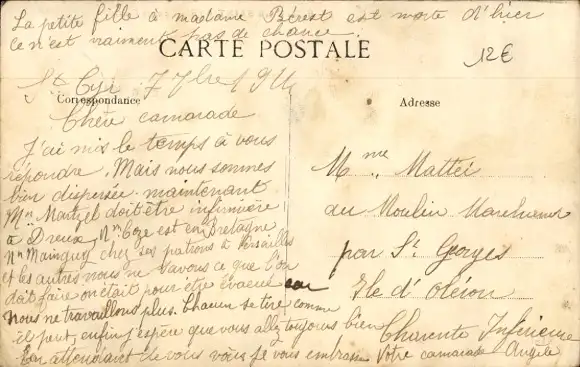 La petite fille à madame Bérest est morte d'hier
ce n'est vraiment pas de chance.
CARTE POSTALE
12€
St Cyr 7 7bre 1914
Correspondance
Adresse
Chère camarade
J'ai mis le temps à vous
répondre. Mais nous sommes
bien dispersée maintenant
Mme doit être infirmière
à Dreux, est en Bretagne
chez ses patrons à Versailles
et les autres nous ne savons ce que l'on
doit faire on était pour être évacué car
nous ne travaillons plus. Chacun se tire comme
il peut, enfin j'espère que vous allez toujours bien
En attendant de vous voir je vous embrasse Votre camarade Angele
Mme Mattéi
au Moulin
par St Georges
Ile d'Oléron
Charente Inférieure